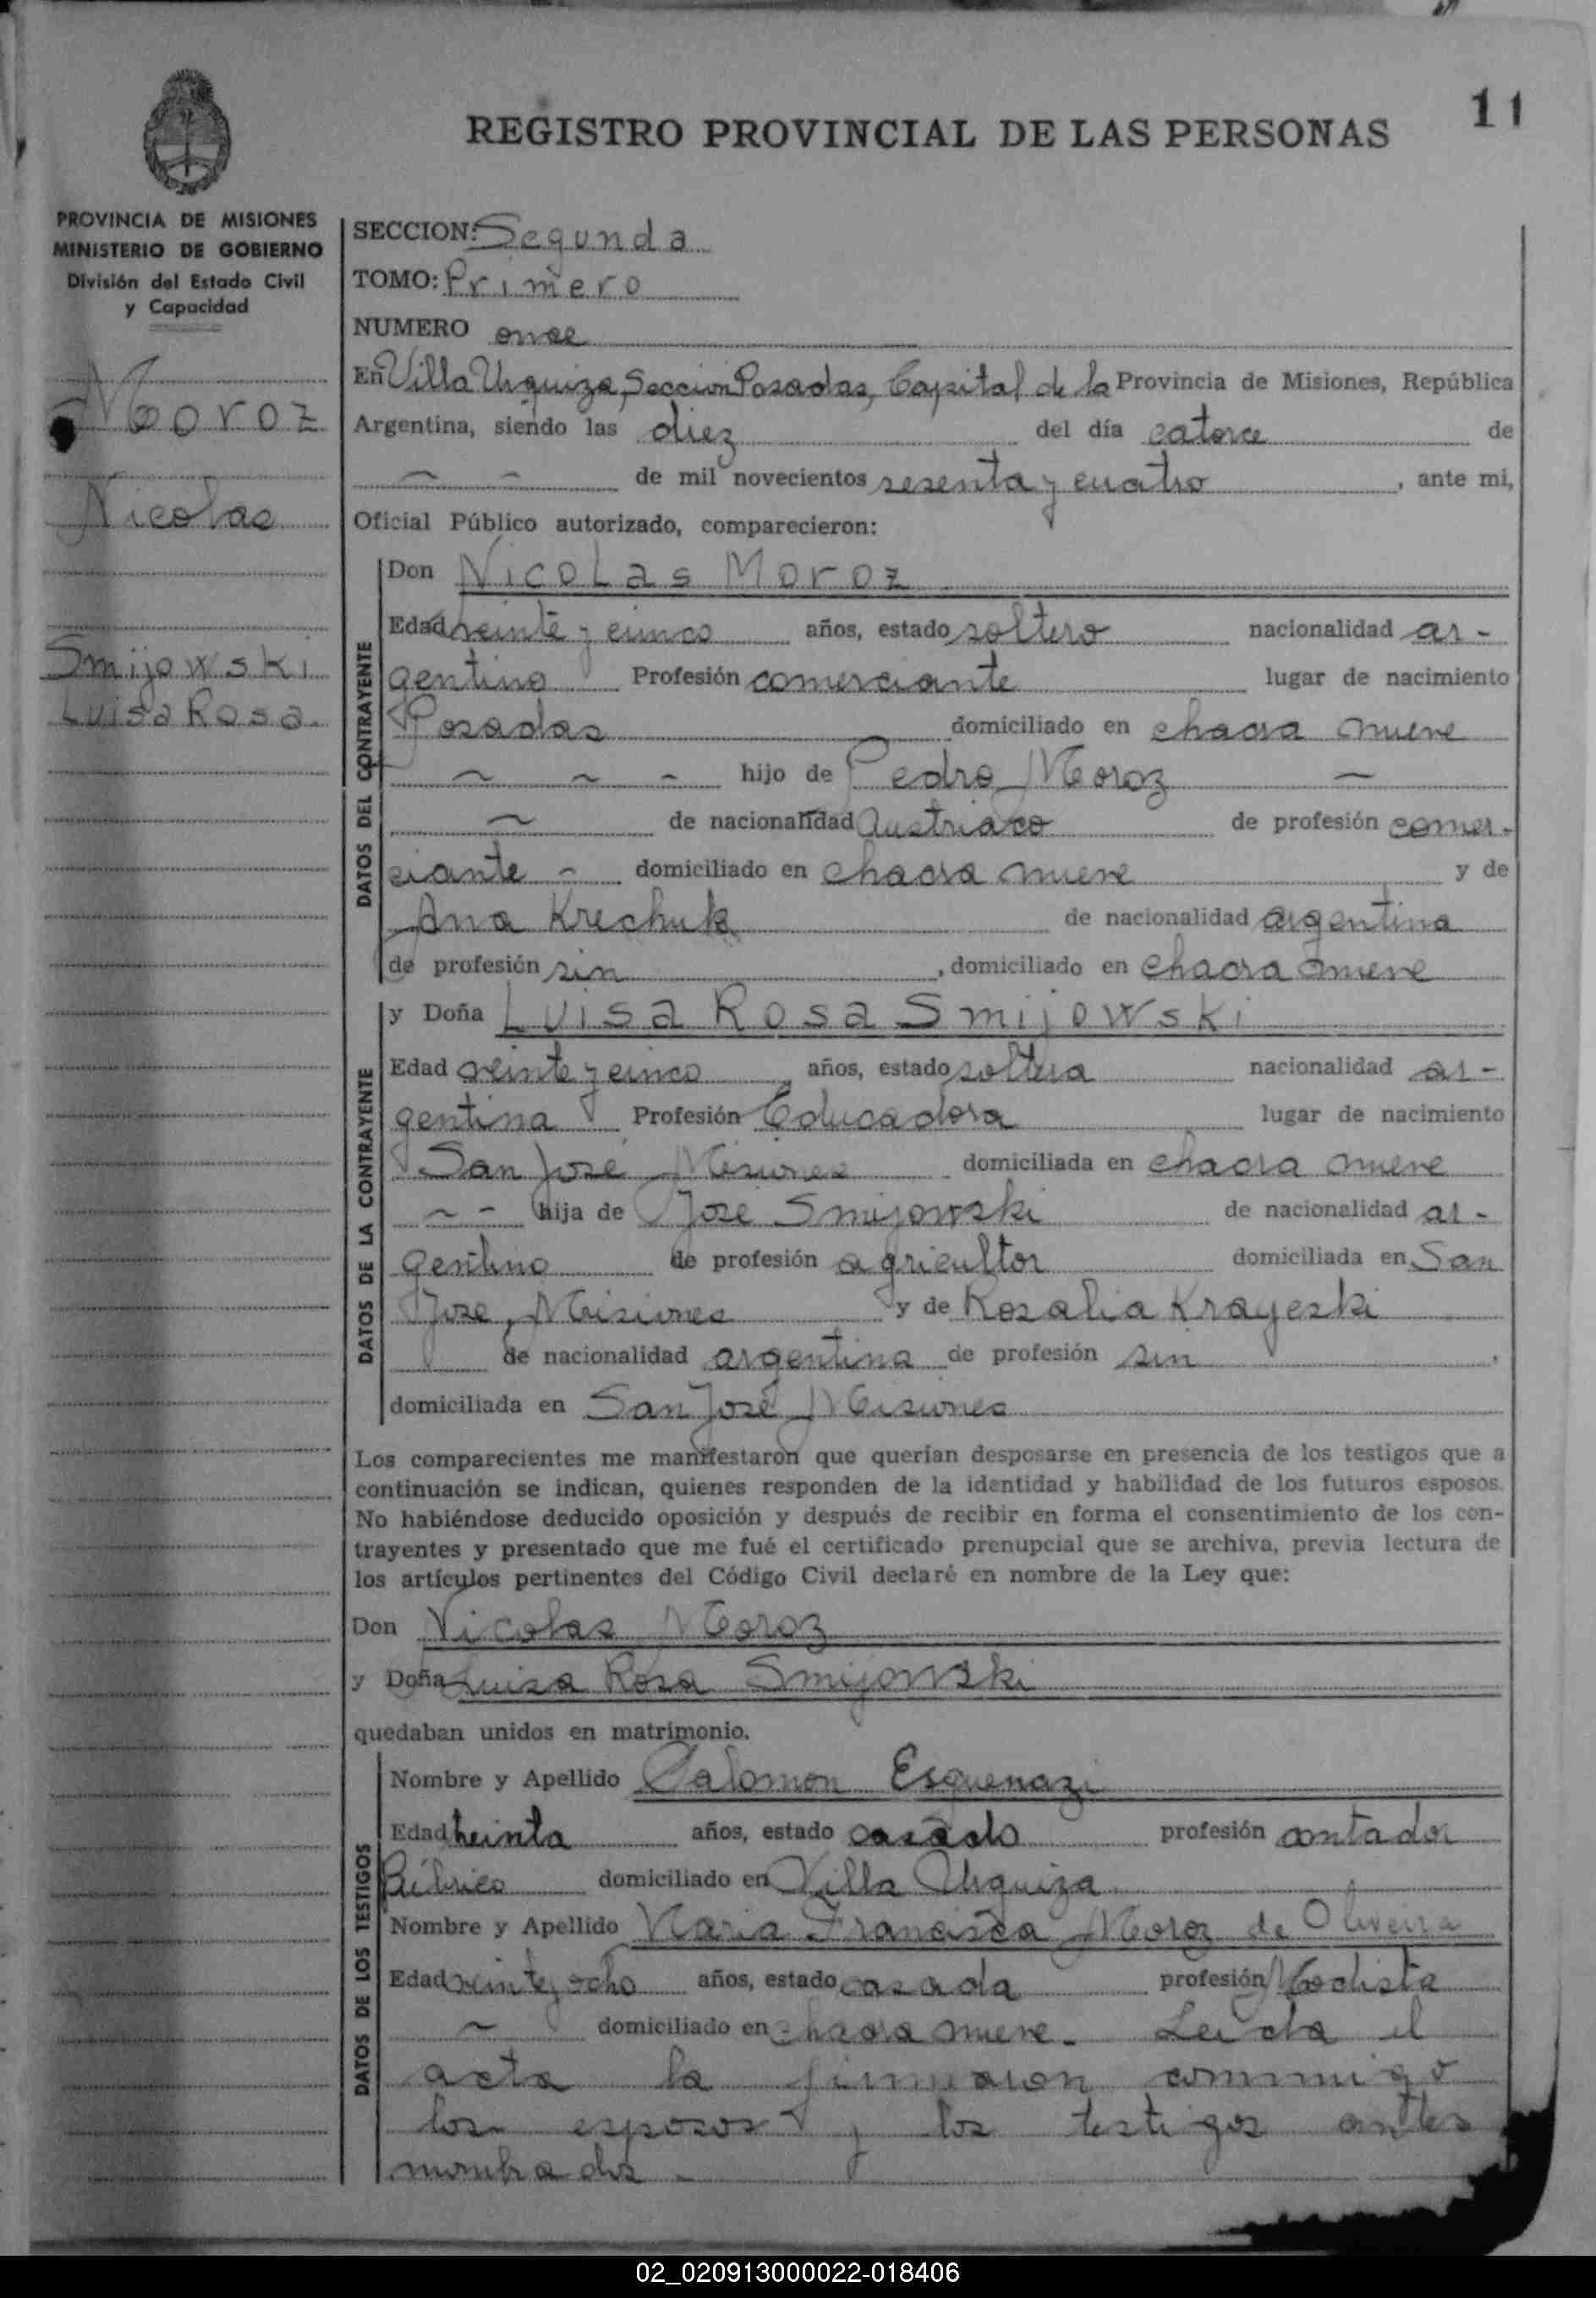 11
REGISTRO PROVINCIAL DE LAS PERSONAS
PROVINCIA DE MISIONES
MINISTERIO DE GOBIERNO
División del Estado Civil
y Capacidad
Moroz
Nicolas
Smijowski
Luisa Rosa.
SECCION: Segunda
TOMO: Primero
NUMERO once
En Villa Urquiza, Seccion Posadas, Capital de la Provincia de Misiones, República
Argentina, siendo las diez del día catorce de
~ ~ de mil novecientos sesenta y cuatro, ante mi,
Oficial Público autorizado, comparecieron:
DATOS DEL CONTRAYENTE
Don Nicolas Moroz
Edad veinte y cinco años, estado soltero nacionalidad ar-
gentino Profesión comerciante lugar de nacimiento
Posadas domiciliado en chacra nueve
~ ~ ~ hijo de Pedro Moroz ~
~ de nacionalidad Austriaco de profesión comer-
ciante - domiciliado en chacra nueve y de
Ana Krechuk de nacionalidad argentina
de profesión sin, domiciliado en chacra nueve
DATOS DE LA CONTRAYENTE
y Doña Luisa Rosa Smijowski
Edad veinte y cinco años, estado soltera nacionalidad ar-
gentina Profesión Educadora lugar de nacimiento
San José Misiones domiciliada en chacra nueve
~ - hija de José Smijowski de nacionalidad ar-
gentino de profesión agricultor domiciliada en San
Jose, Misiones y de Rosalia Krayeski
de nacionalidad argentina de profesión sin,
domiciliada en San José Misiones
Los comparecientes me manifestaron que querían desposarse en presencia de los testigos que a
continuación se indican, quienes responden de la identidad y habilidad de los futuros esposos.
No habiéndose deducido oposición y después de recibir en forma el consentimiento de los con-
trayentes y presentado que me fué el certificado prenupcial que se archiva, previa lectura de
los artículos pertinentes del Código Civil declaré en nombre de la Ley que:
Don Nicolas Moroz
y Doña Luisa Rosa Smijowski
quedaban unidos en matrimonio.
DATOS DE LOS TESTIGOS
Nombre y Apellido Salomon Esquenazi
Edad treinta años, estado casado profesión contador
Público domiciliado en Villa Urquiza
Nombre y Apellido Maria Francisca Moroz de Oliveira
Edad veinte y ocho años, estado casada profesión Modista
~ domiciliado en chacra nueve. Leida el
acta la firmaron conmigo
los esposos y los testigos antes
nombrados -
02_020913000022-018406